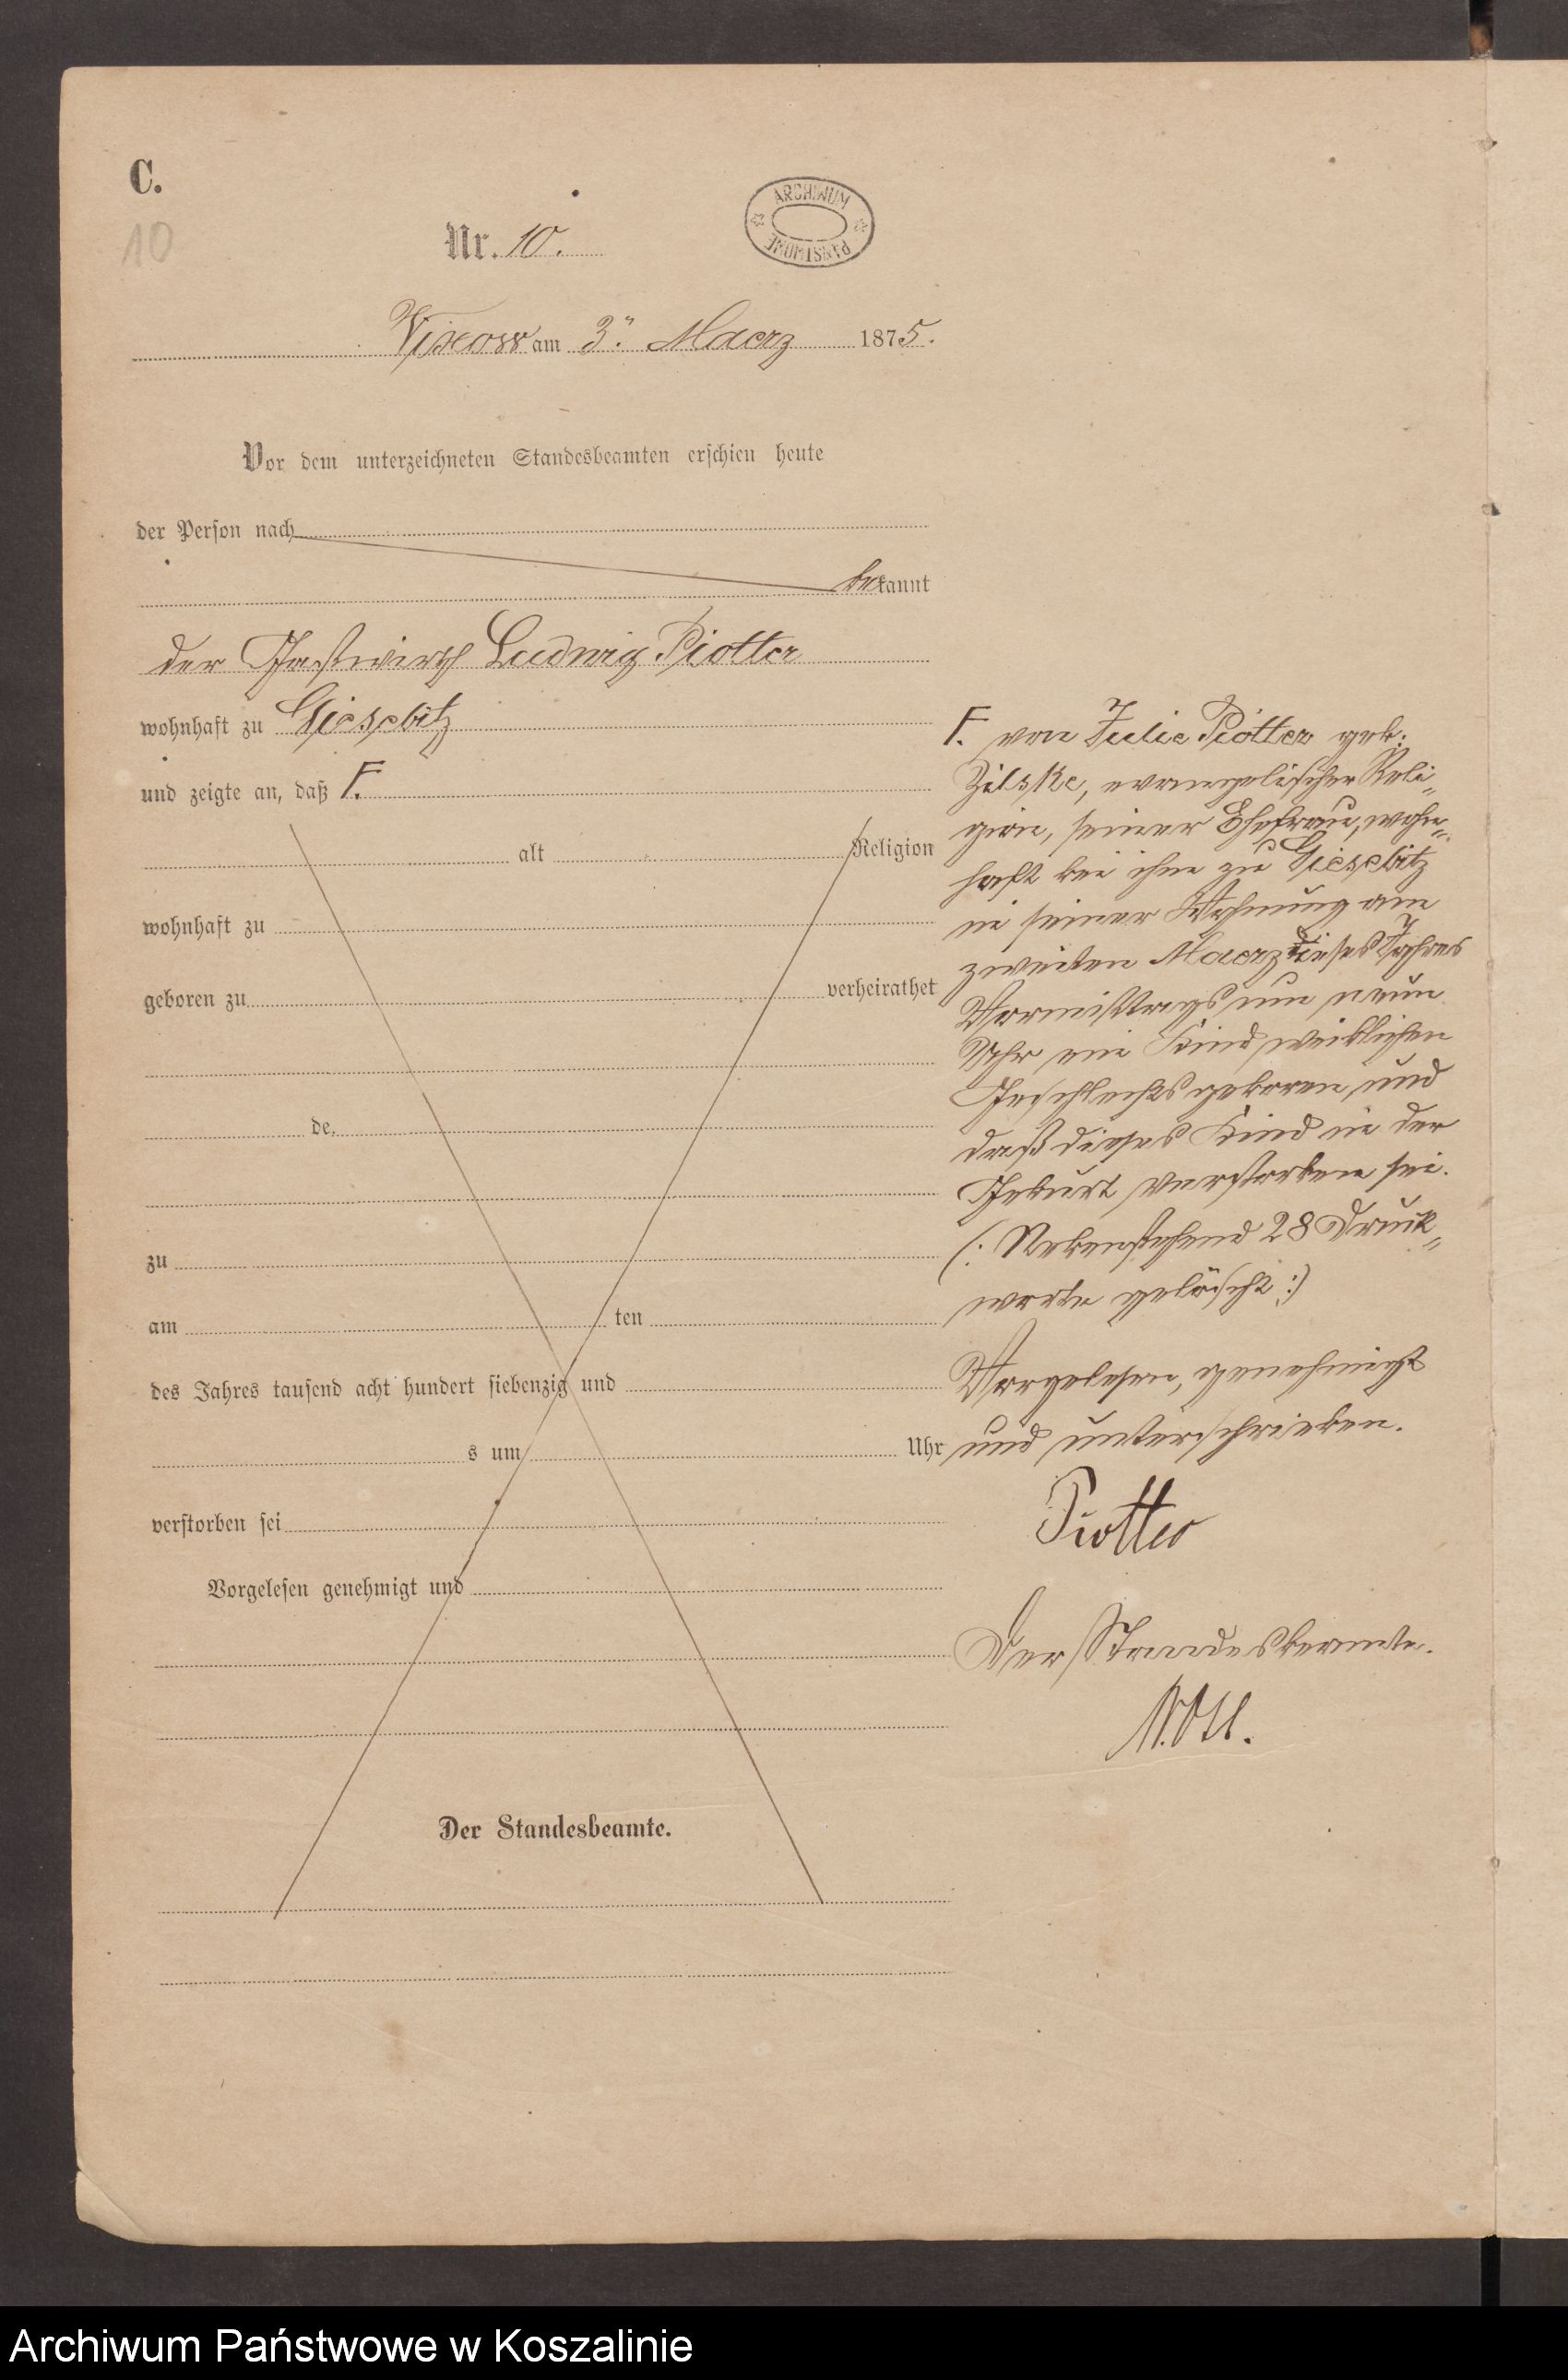 C.
10
Nr. 10.
ARCHIWUM PAŃSTWOWE
Vixow am 3. Maerz 1875.
Vor dem unterzeichneten Standesbeamten erschien heute
der Person nach
bekannt
der Gastwirth Ludwig Piotter
wohnhaft zu Giesebitz
und zeigte an, daß F.
alt Religion
wohnhaft zu
geboren zu verheirathet
de
zu
am ten
des Jahres tausend acht hundert siebenzig und
s um Uhr
verstorben sei
Vorgelesen genehmigt und
Der Standesbeamte.
F. von Julie Piotter geb:
Zilske, evangelischer Reli„
gion, seiner Ehefrau, wohn„
haft bei ihm zu Giesebitz
in seiner Wohnung am
zweiten Maerz dieses Jahres
Vormittags um neun
Uhr ein Kind weiblichen
Geschlechts geboren und
daß dieses Kind in der
Geburt verstorben sei.
(: Nebenstehend 28 Druck„
worte gelöscht :)
Vorgelesen, genehmigt
und unterschrieben.
Piotter
Der Standesbeamte.
Archiwum Państwowe w Koszalinie